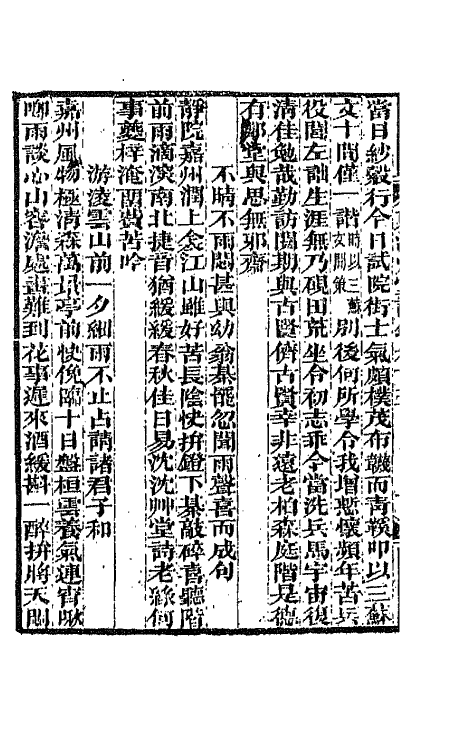 當日紗縠行今日試院街士氣頗樸茂布韈而靑鞵叩以三蘇
文十問僅一諧時以三蘇文開策別後何所學令我增慙懷頻年苦兵
役閭左詘生涯無乃硯田荒坐令初志乖今當洗兵馬宇宙復
淸佳勉哉勤訪問期與古賢儕古賢幸非遠老柏森庭階是德
有鄰堂與思無邪齋
不晴不雨悶甚與幼翁棊罷忽聞雨聲喜而成句
靜院嘉州澗上衾江山雖好苦長陰快拚鐙下棊敲碎喜聽階
前雨滴深南北捷音猶緩緩春秋佳日易沈沈艸堂詩老緣何
事夔梓淹留費苦吟
游淩雲山前一夕細雨不止占請諸君子和
嘉州風物極淸森萬景亭前快俛臨十日盤桓雲養氣連宵啾
唧雨談心山容澹處畫難到花事遲來酒緩斟一醉拚將天閣